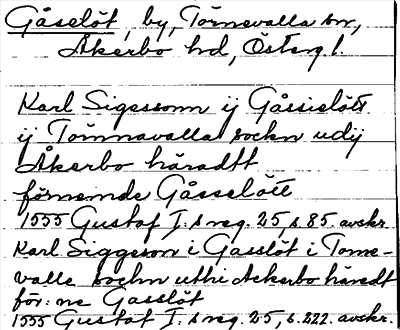 Gåselöt, by, Törnevalla sn,
Åkerbo hd, Österg l.
Karl Sigessonn ij Gåssielött
ij Tömnavalla sockn udij
Åkerbo häradtt
förnemde Gåsselött
1555 Gustaf I:s reg. 25, s 85. avskr.
Karl Siggeson i Gasslöt i Torne-
valla sochn uthi Aekerbo häredt
för:ne Gasslöt
1555 Gustaf I:s reg. 25, s. 222. avskr.